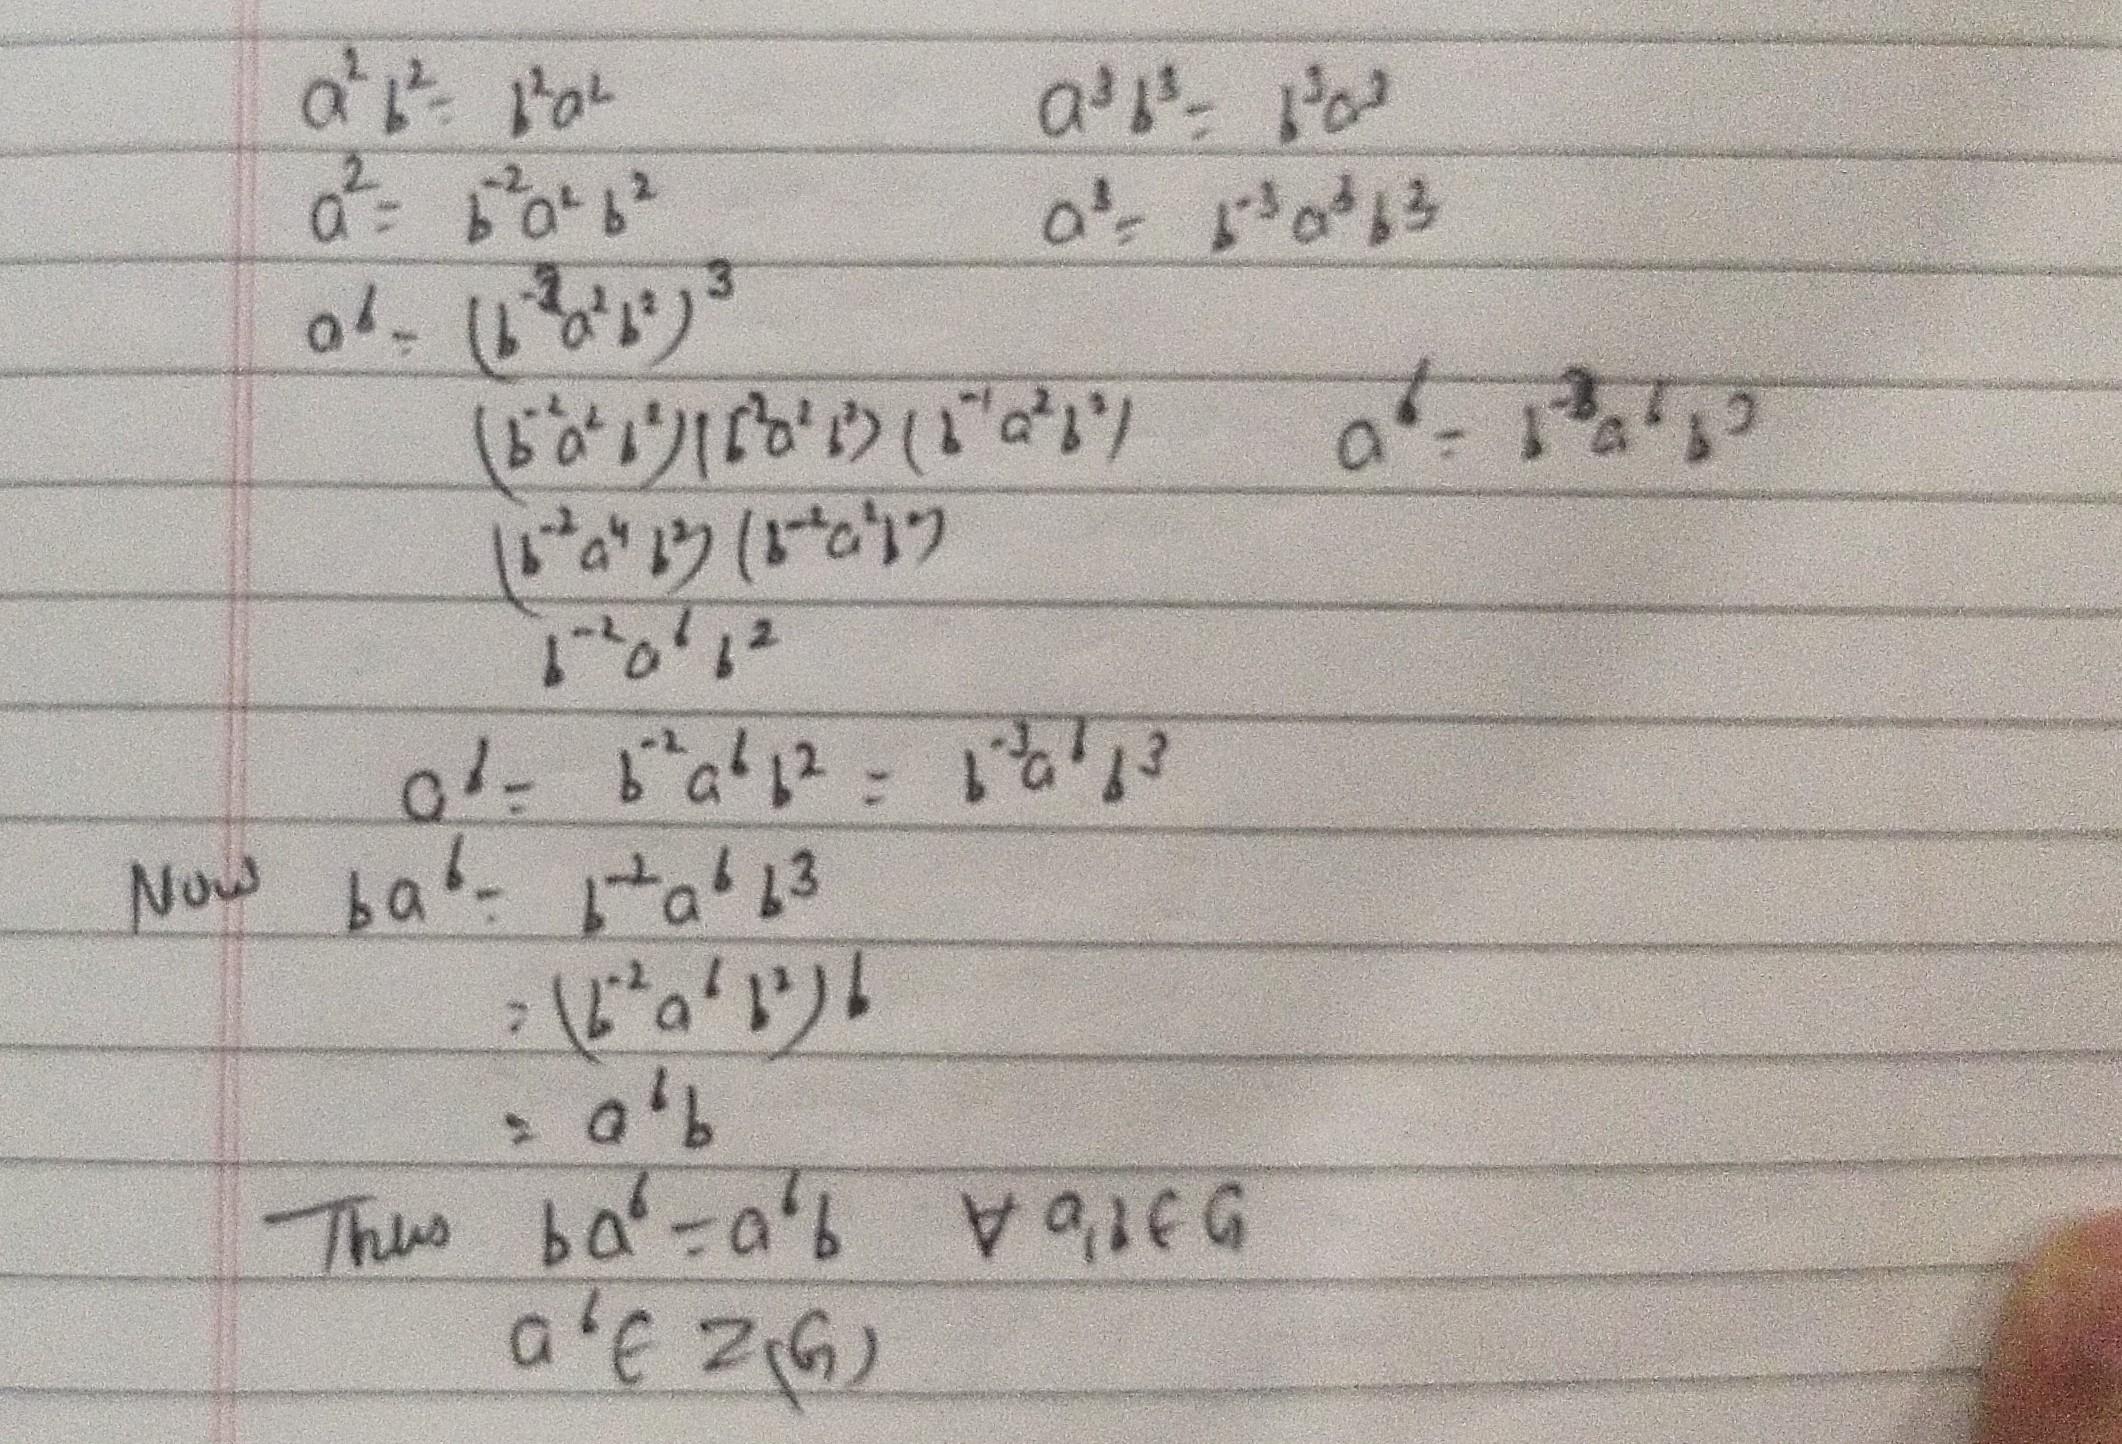 a²b² = b²a² a³b³ = b³a³
a² = b⁻²a²b² a³ = b⁻³a³b³
a⁶ = (b⁻²a²b²)³
(b⁻²a²b²)(b⁻²a²b²)(b⁻¹a²b²) a⁶ = b⁻³a⁶b³
(b⁻²a⁴b²)(b⁻²a²b²)
b⁻²a⁶b²
a⁶ = b⁻²a⁶b² = b⁻³a⁶b³
Now ba⁶ = b⁻²a⁶b³
= (b⁻²a⁶b²)b
= a⁶b
Thus ba⁶ = a⁶b ∀ a,b ∈ G
a⁶ ∈ Z(G)